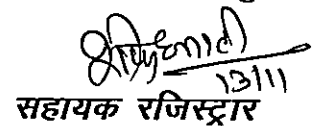 13/11
सहायक रजिस्ट्रार